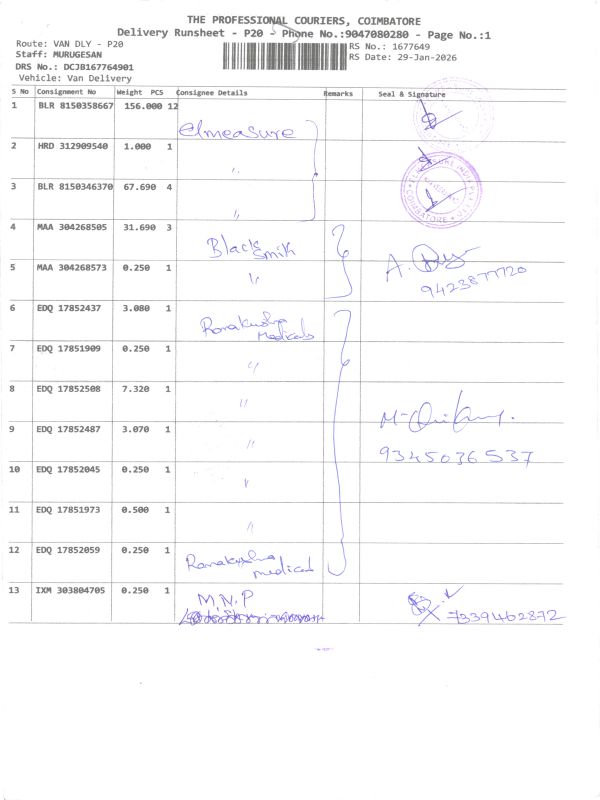 THE PROFESSIONAL COURIERS, COIMBATORE
Delivery Runsheet - P20 - Phone No.:9047080280 - Page No.:1
Route: VAN DLY - P20
RS No.: 1677649
Staff: MURUGESAN
RS Date: 29-Jan-2026
DRS No.: DCJB167764901
Vehicle: Van Delivery
S No Consignment No Weight PCS Consignee Details Remarks Seal & Signature
1 BLR 8150358667 156.000 12 elmeasure
2 HRD 312909540 1.000 1 "
3 BLR 8150346370 67.690 4 "
COIMBATORE
4 MAA 304268505 31.690 3 Black Smith
5 MAA 304268573 0.250 1 "
9423877720
6 EDQ 17852437 3.080 1 Ramakushna Medicals
7 EDQ 17851909 0.250 1 "
8 EDQ 17852508 7.320 1 "
9 EDQ 17852487 3.070 1 "
9345036537
10 EDQ 17852045 0.250 1 "
11 EDQ 17851973 0.500 1 "
12 EDQ 17852059 0.250 1 Ramakushna medical
13 IXM 303804705 0.250 1 M.N.P
7339462872